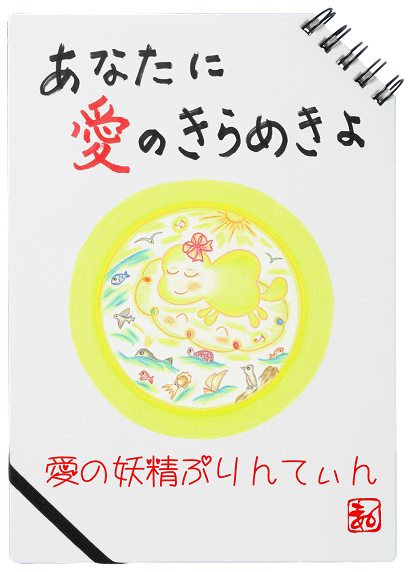 あなたに
愛のきらめきよ
愛の妖精ぷりんてぃん